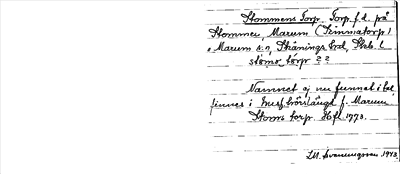 Stommens Torp. Torp f.d. på
Stommen, Marum (Timmatorp)
Marum s:n, Skånings hd, Skb. l.
stoms torp ??
Namnet ej nu funnet i bel.
finnes i husförslängd f. Marum.
Stoms torp. Hfl. 1773.
1943